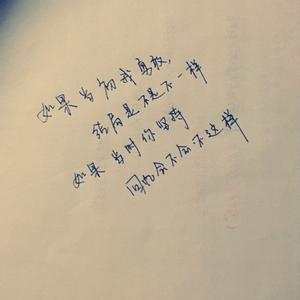 如果当初我勇敢,
结局是不是不一样
如果当时你坚持
回忆会不会不这样